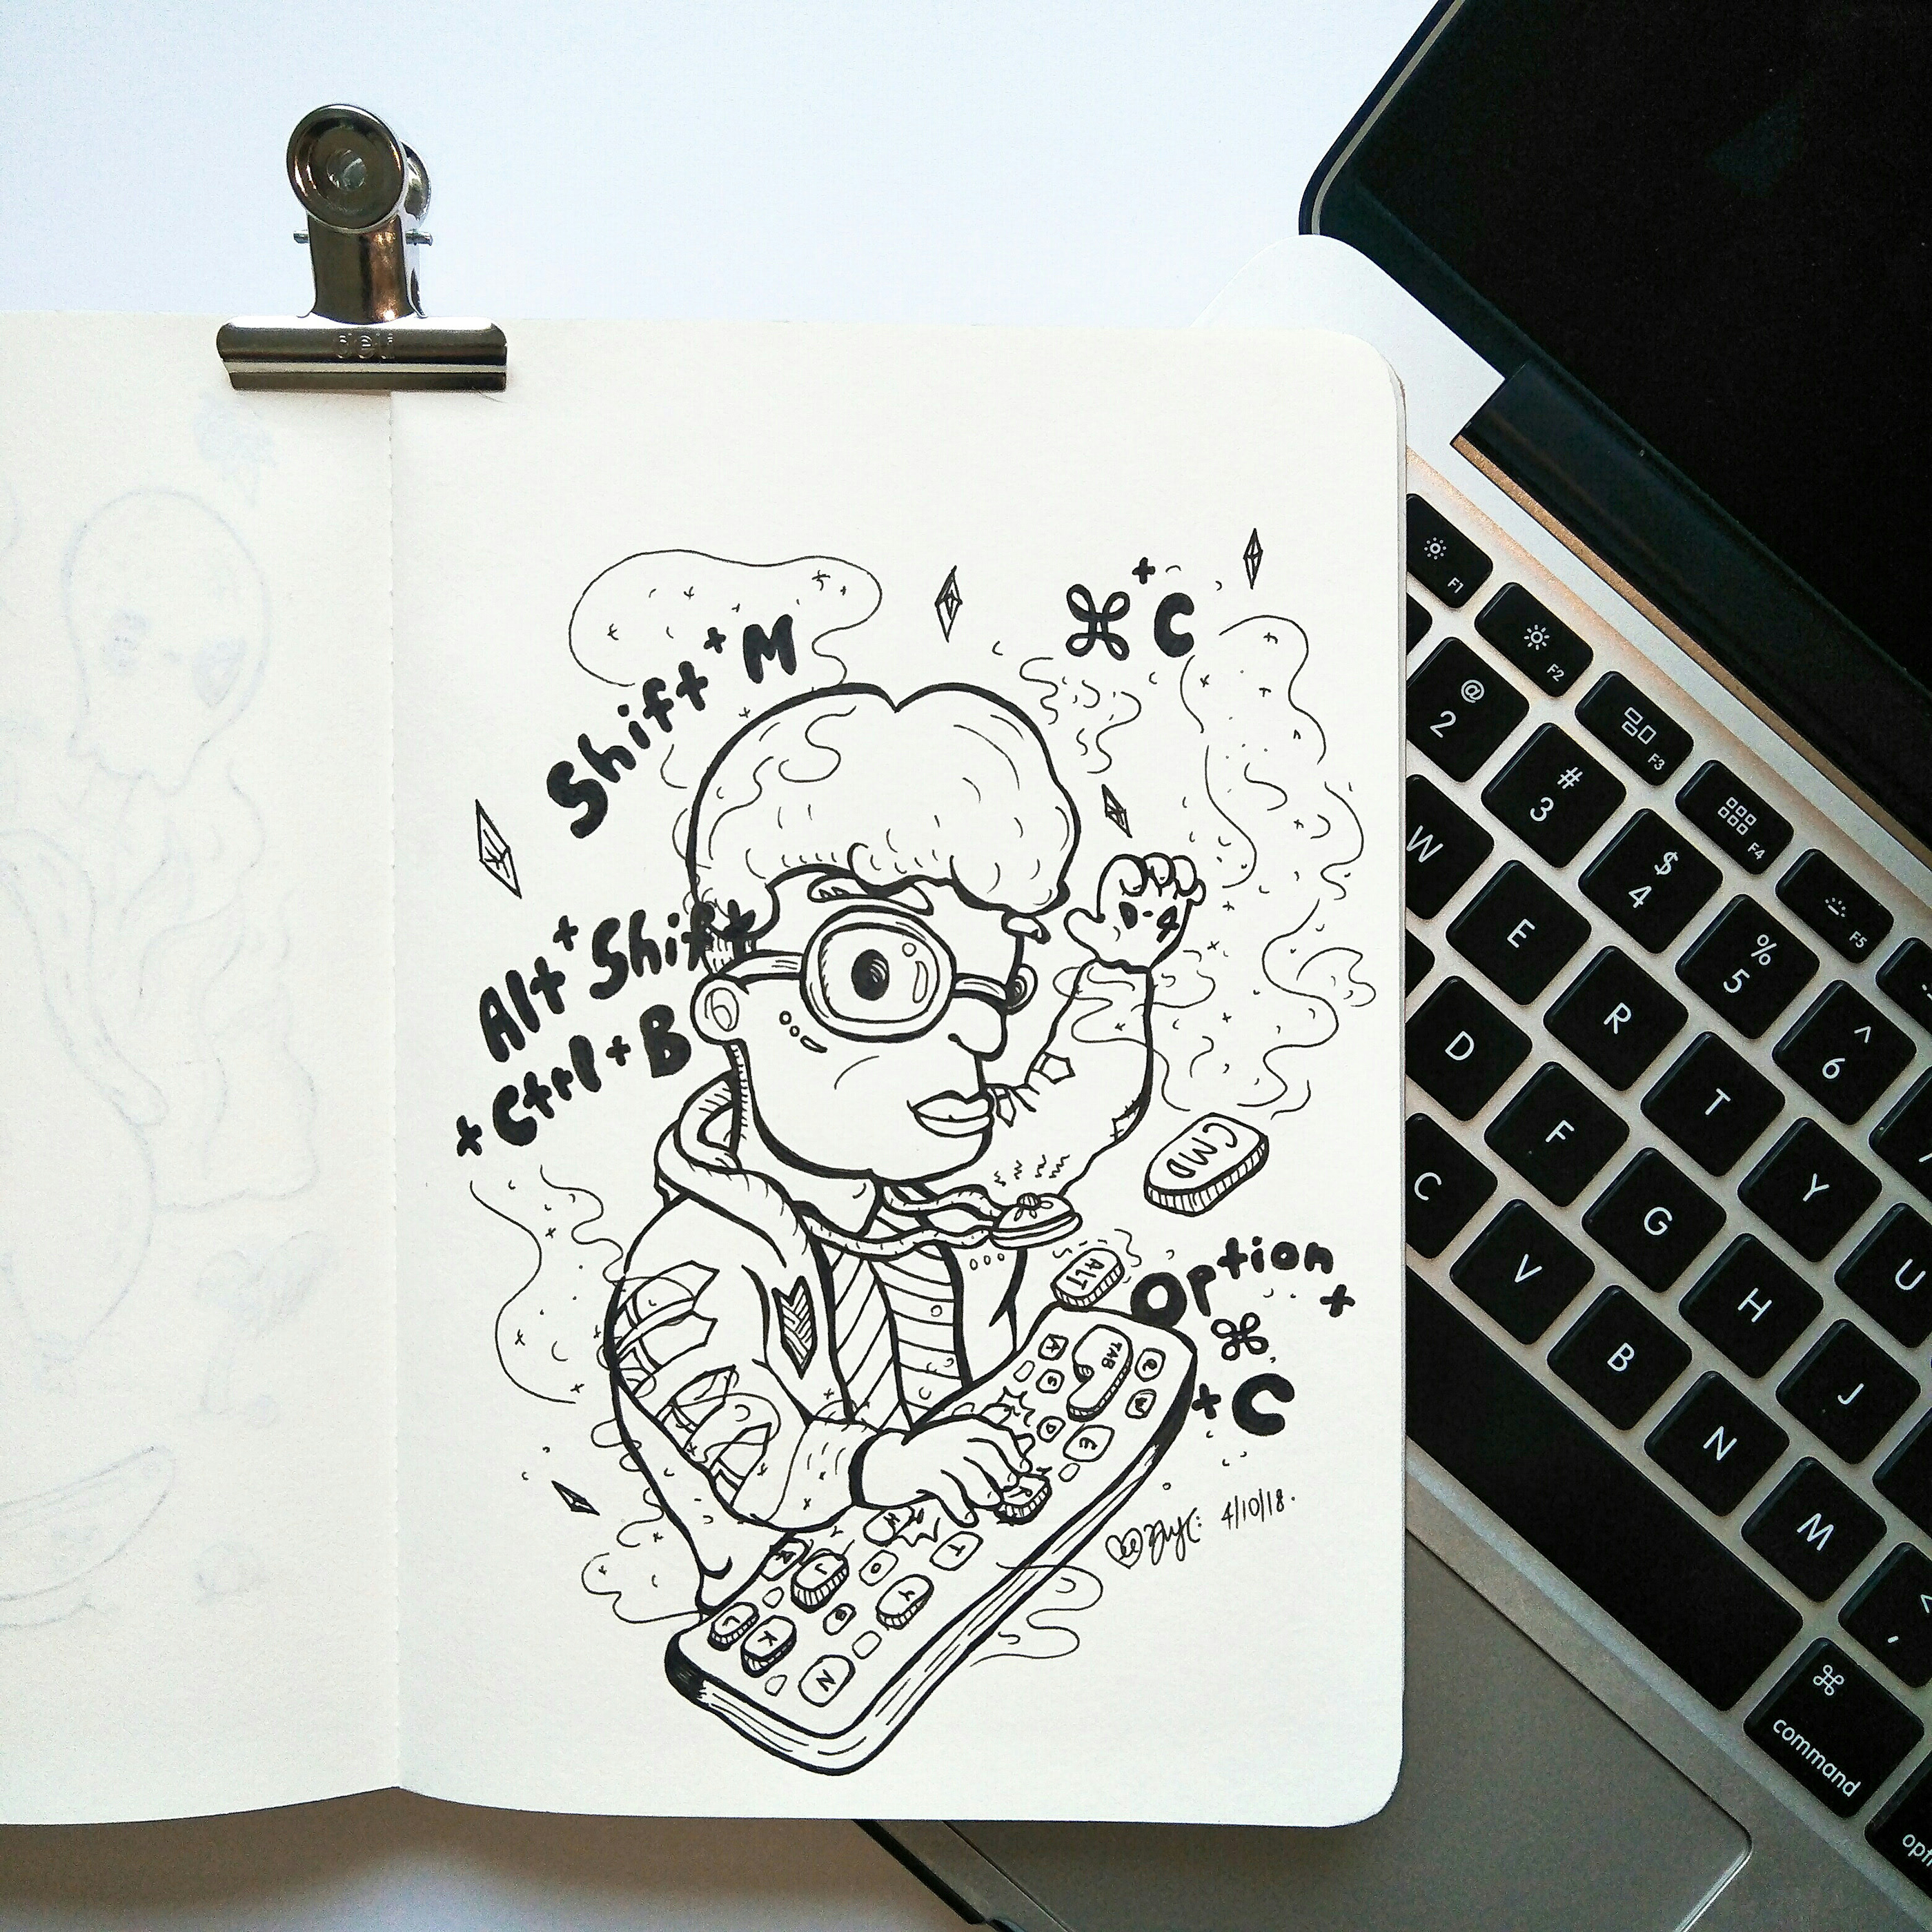 deli
Shift + M
⌘ + C
Alt + Shift
+ Ctrl + B
CMD
ALT
Option +
⌘
+ C
TAB
A
Q
S
W
D
E
T
O
Y
J
L
K
N
4/10/18.
F1
F2
F3
F4
F5
@
2
#
3
$
4
%
5
^
6
W
E
R
T
Y
U
D
F
G
H
J
C
V
B
N
M
<
,
⌘
command